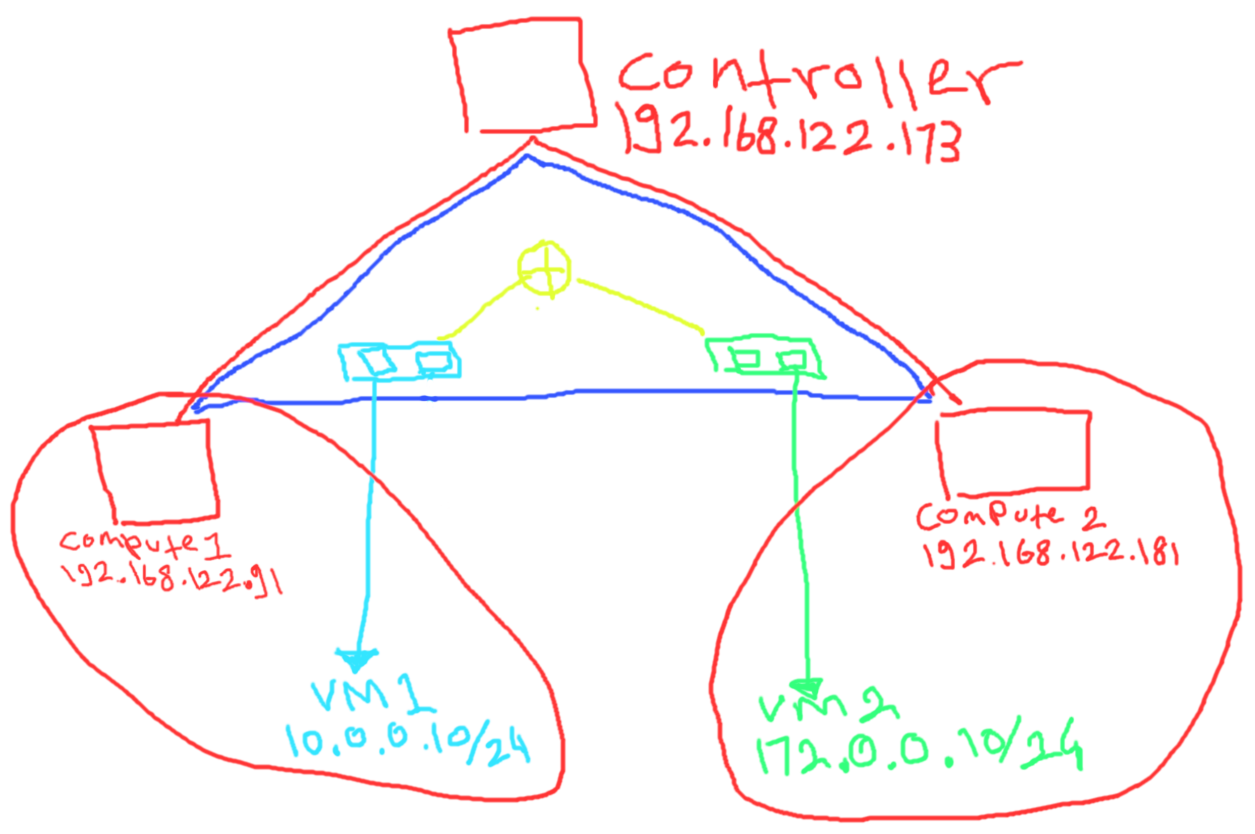 controller
192.168.122.173
compute 1
192.168.122.91
compute 2
192.168.122.181
VM 1
10.0.0.10/24
VM 2
172.0.0.10/24